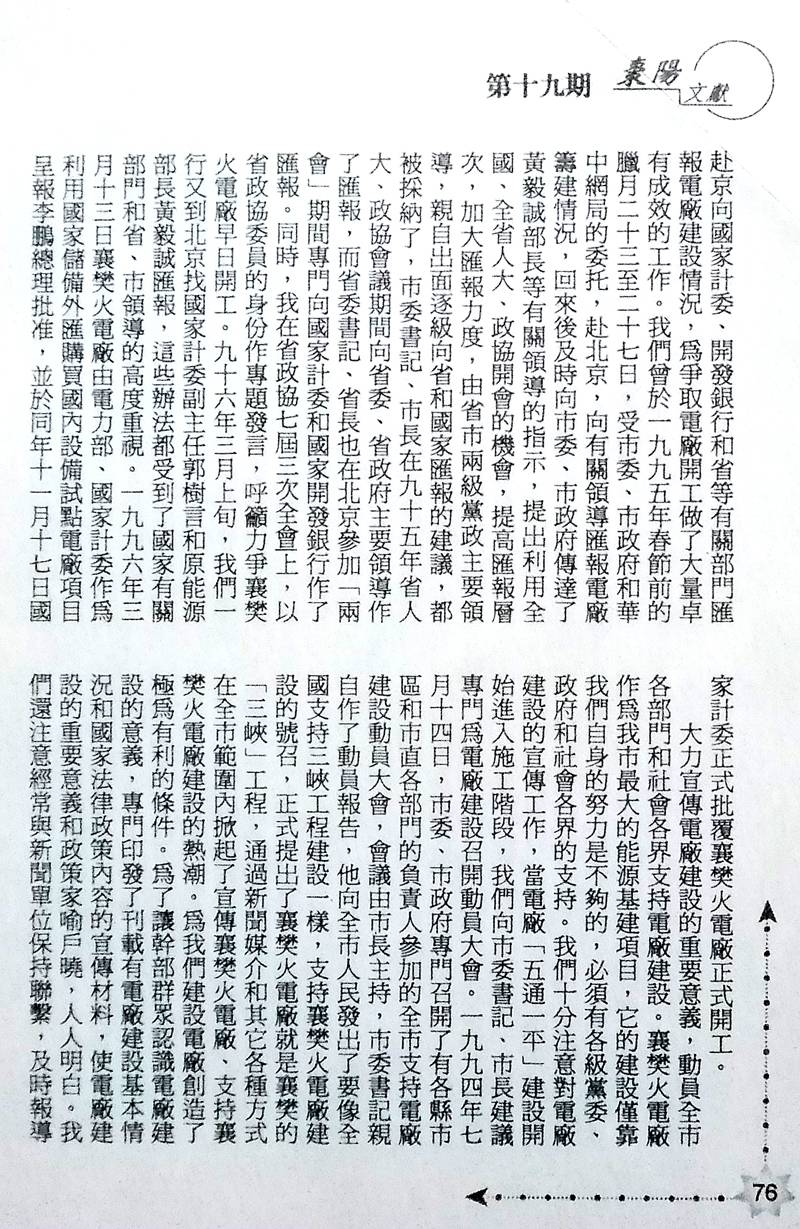 棗陽
文獻
第十九期
赴京向國家計委、開發銀行和省等有關部門匯
報電廠建設情況，爲爭取電廠開工做了大量卓
有成效的工作。我們曾於一九九五年春節前的
臘月二十三至二十七日，受市委、市政府和華
中網局的委托，赴北京，向有關領導匯報電廠
籌建情況，回來後及時向市委、市政府傳達了
黃毅誠部長等有關領導的指示，提出利用全
國、全省人大、政協開會的機會，提高匯報層
次，加大匯報力度，由省市兩級黨政主要領
導，親自出面逐級向省和國家匯報的建議，都
被採納了，市委書記、市長在九十五年省人
大、政協會議期間向省委、省政府主要領導作
了匯報，而省委書記、省長也在北京參加「兩
會」期間專門向國家計委和國家開發銀行作了
匯報。同時，我在省政協七屆三次全會上，以
省政協委員的身份作專題發言，呼籲力爭襄樊
火電廠早日開工。九十六年三月上旬，我們一
行又到北京找國家計委副主任郭樹言和原能源
部長黃毅誠匯報，這些辦法都受到了國家有關
部門和省、市領導的高度重視。一九九六年三
月十三日襄樊火電廠由電力部、國家計委作爲
利用國家儲備外匯購買國內設備試點電廠項目
呈報李鵬總理批准，並於同年十一月十七日國
家計委正式批覆襄樊火電廠正式開工。
大力宣傳電廠建設的重要意義，動員全市
各部門和社會各界支持電廠建設。襄樊火電廠
作爲我市最大的能源基建項目，它的建設僅靠
我們自身的努力是不夠的，必須有各級黨委、
政府和社會各界的支持。我們十分注意對電廠
建設的宣傳工作，當電廠「五通一平」建設開
始進入施工階段，我們向市委書記、市長建議
專門爲電廠建設召開動員大會。一九九四年七
月十四日，市委、市政府專門召開了有各縣市
區和市直各部門的負責人參加的全市支持電廠
建設動員大會，會議由市長主持，市委書記親
自作了動員報告，他向全市人民發出了要像全
國支持三峽工程建設一樣，支持襄樊火電廠建
設的號召，正式提出了襄樊火電廠就是襄樊的
「三峽」工程，通過新聞媒介和其它各種方式
在全市範圍內掀起了宣傳襄樊火電廠、支持襄
樊火電廠建設的熱潮。爲我們建設電廠創造了
極爲有利的條件。爲了讓幹部群眾認識電廠建
設的意義，專門印發了刊載有電廠建設基本情
況和國家法律政策內容的宣傳材料，使電廠建
設的重要意義和政策家喻戶曉，人人明白。我
們還注意經常與新聞單位保持聯繫，及時報導
76